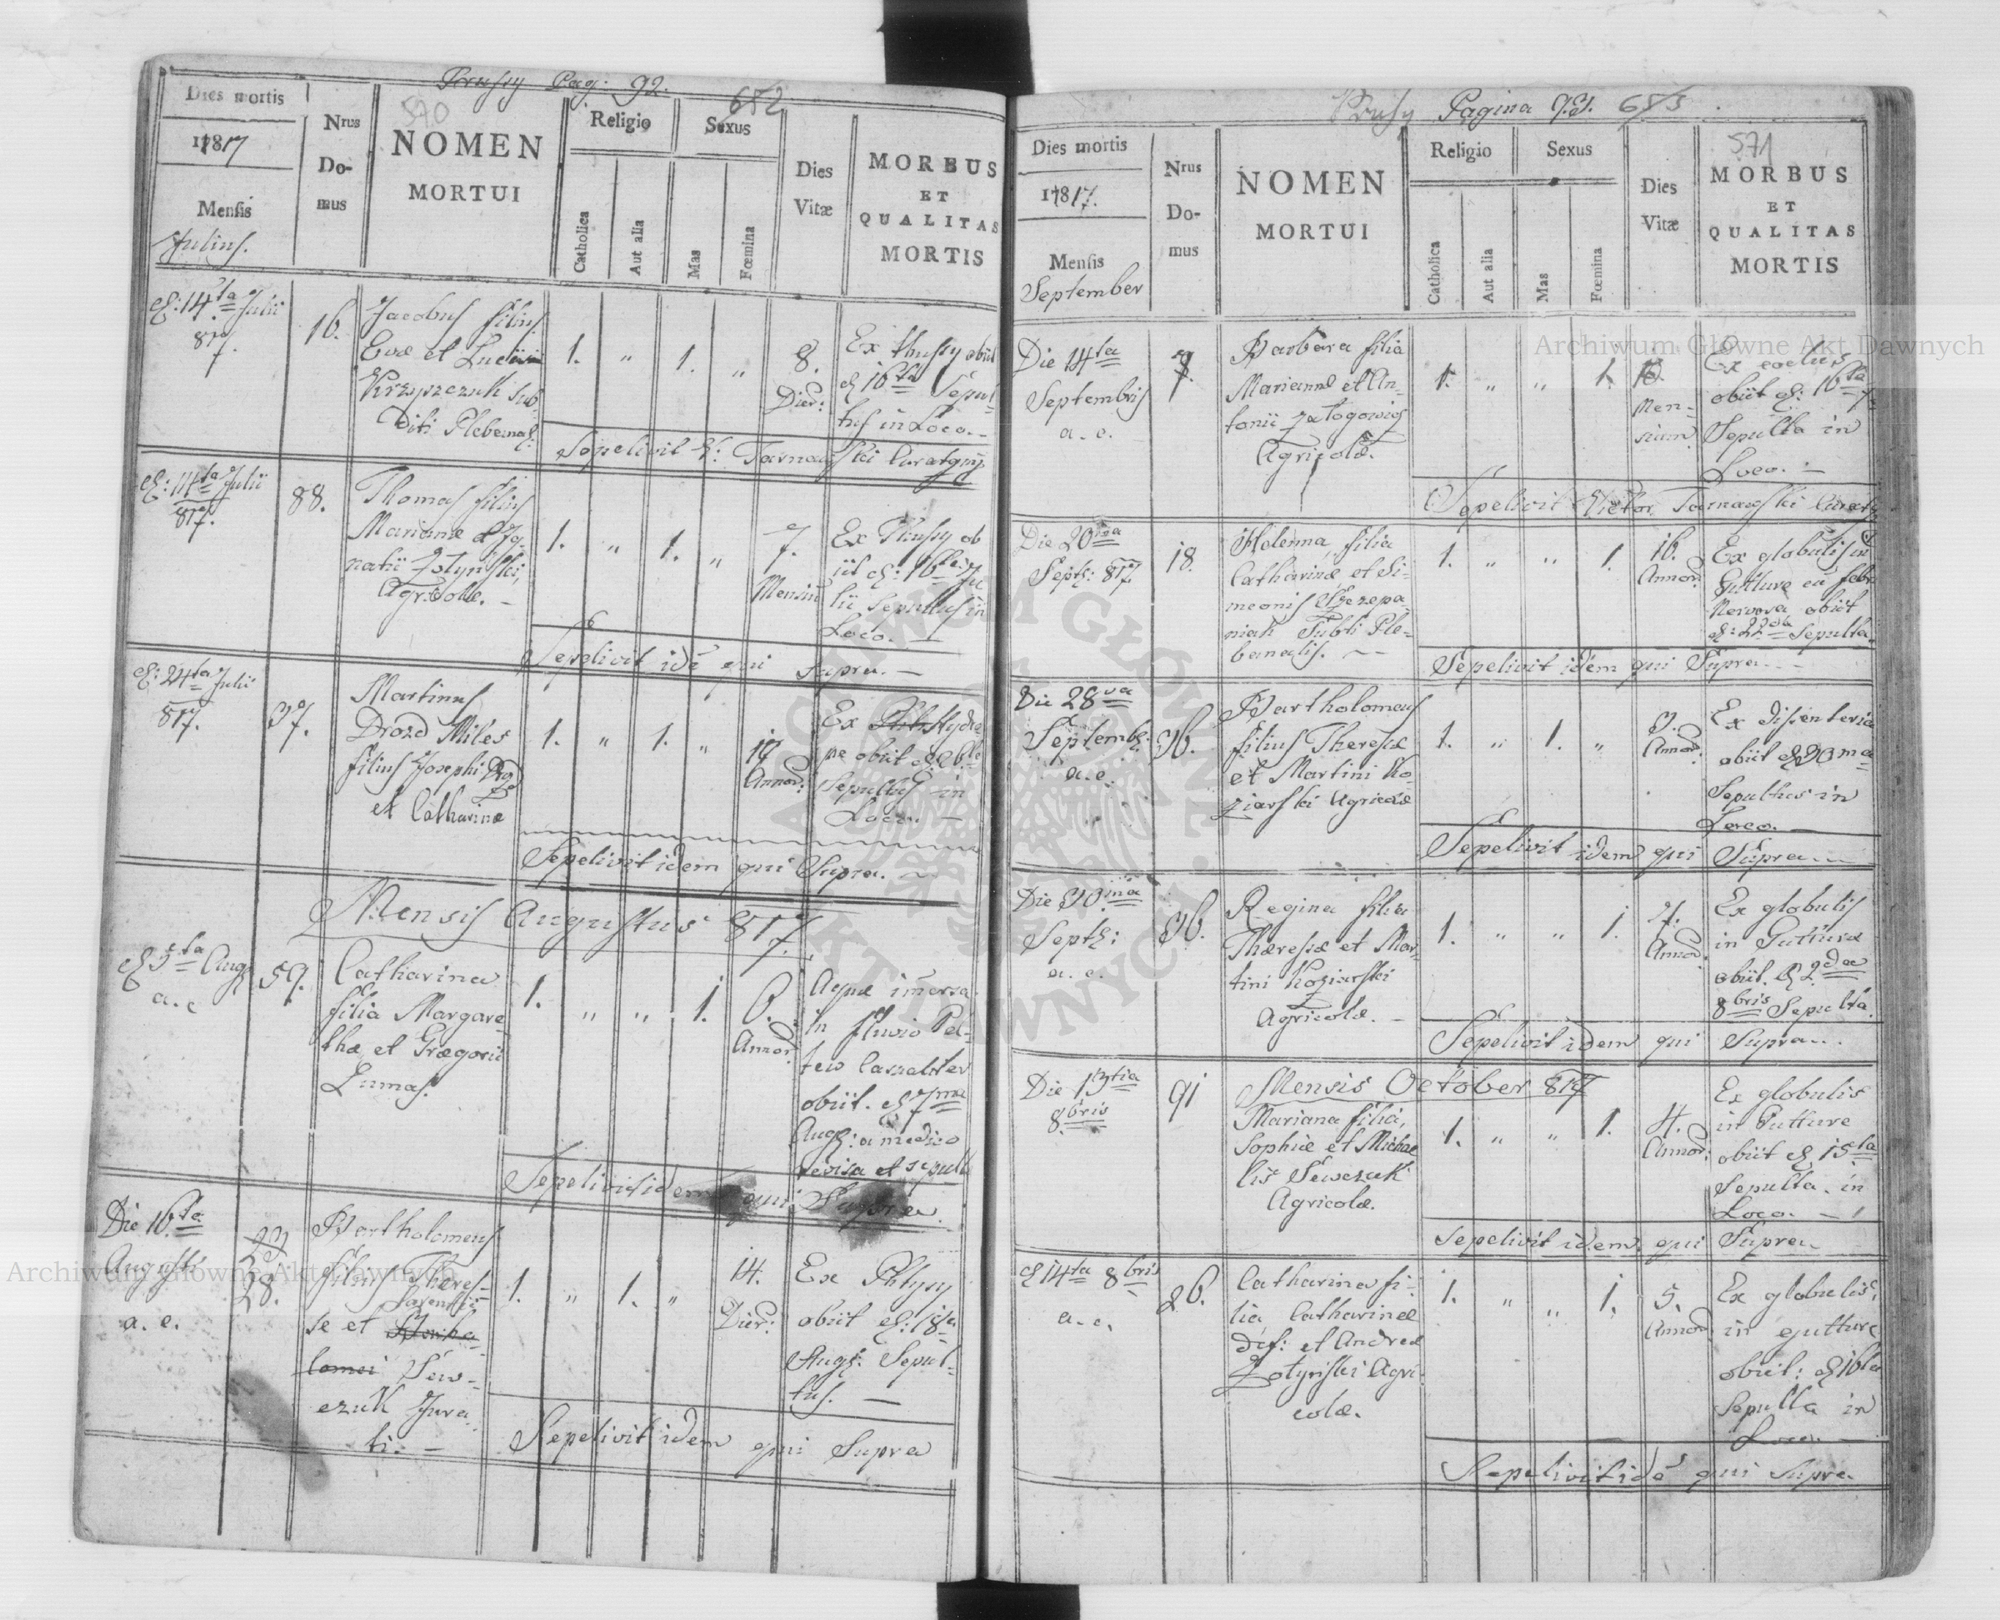 Prussy Pag: 92.
652
570
Dies mortis
1817
Mensis
Julius.
Nrus
Do-
mus
NOMEN
MORTUI
Religio
Catholica
Aut alia
Sexus
Mas
Fœmina
Dies
Vitæ
MORBUS
ET
QUALITAS
MORTIS
d: 14ta Julii
817.
16.
Jacobus filius
Evæ et Lucæ
Krzyszczuk Sub
Diti Plebanal:
1.
"
1.
"
8.
Dier:
Ex thussy obiit
d 16ta Sepul-
tus in Loco. -
Sepelivit V: Tarnawski Curatg
d: 14ta Julii
817.
88.
Thomas filius
Mariannæ et Ig-
natii Zotynski,
Agricolæ. -
1.
"
1.
"
7.
Mensiū
Ex Thussy ob
iit d: 16ta Ju
lii Sepultus in
Loco. -
Sepelivit idē qui supra. -
d: 24ta Julii
817.
37.
Martinus
Drozd Miles
filius Josephi
et Catharinæ
1.
"
1.
"
19
Annor:
Ex Hydro
pe obiit d 26ta
Sepultus in
Loco. -
Sepelivit idem qui Supra. -
Mensis Augustus 817.
d 5ta Aug
a. c
59.
Catharina
filia Margare
thæ et Græegorii
Lumas.
1.
"
"
1.
6.
Annor.
Aquæ imersa
in fluvio Pel-
tew Casualiter
obiit. d 7ma
Aug: a medico
revisa et sepulta
Sepelivit idem qui Supra.
Die 16ta
Augusti
a. c.
23
28.
Bartholomeus
filius Theres-
Laurentii
se et
Sew-
czuk Jura
ti. -
1.
"
1.
"
14.
Dier:
Ex Phtysy
obiit d: 18ta
Aug: Sepul-
tus. -
Sepelivit idem qui Supra
Prussy Pagina 93. 653
571
Dies mortis
1817.
Mensis
September
Nrus
Do-
mus
NOMEN
MORTUI
Religio
Catholica
Aut alia
Sexus
Mas
Fœmina
Dies
Vitæ
MORBUS
ET
QUALITAS
MORTIS
Die 14ta
Septembris
a. c.
7.
Barbara filia
Mariannæ et An-
tonii Zalogowicz
Agricolæ.
1.
"
"
1.
18.
Men-
sium
Ex
obiit d: 16ta
Sepulta in
Loco. -
Sepelivit Victor Tarnawski Curatg
Die 20ma
Septb: 817
18.
Helenna, filia
Catharinæ et Si-
meonis Szczepa
niak Subti Ple-
banalis. -
1.
"
"
1.
16.
Annor:
Ex globulis in
Gutture cū febri
Nervosa obiit
d: 22da Sepulta.
Sepelivit idem qui Supra. -
Die 28va
Septemb:
a. c.
36.
Bartholomeus
filius Theresiæ
et Martini Ko-
ziarski Agricolæ
1.
"
1.
"
3.
Annor:
Ex dissenteria
obiit d 30ma
Sepultus in
Loco. -
Sepelivit idem qui Supra. -
Die 30ma
Septb:
a. c.
36.
Regina filia
Theresiæ et Mar-
tini Koziarski
Agricolæ. -
1.
"
"
1.
7.
Annor.
Ex globulis
in Gutture
obiit. d 2da
8bris Sepulta.
Sepelivit idem qui Supra. -
Mensis October 817
Die 13tia
8bris
91
Mariana filia,
Sophiæ et Michae
lis Sewczuk
Agricolæ.
1.
"
"
1.
4.
Annor:
Ex globulis
in Gutture
obiit d 15ta
Sepulta. in
Loco. -
Sepelivit idem qui Supra.
d 14ta 8bris
a. c.
26.
Catharina fi-
lia Catharinæ
Def: et Andreæ
Zotynski Agri-
colæ.
1.
"
"
1.
5.
Annor
Ex globulis,
in gutture
obiit: d 16ta
Sepulta in
Loco. -
Sepelivit idē qui Supra.
Archiwum Główne Akt Dawnych
Archiwum Główne Akt Dawnych
ARCHIWUM GŁÓWNE AKT DAWNYCH